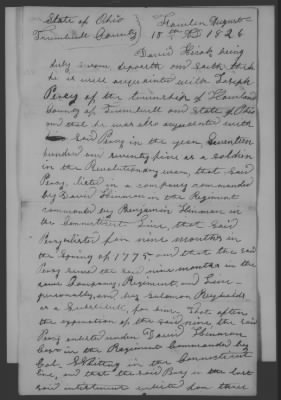 State of Ohio
Trumbull County
August
15th AD 1826
David Hicok being
duly sworn deposeth and saith that
he is well acquainted with Joseph
Percy of the township of Howland
County of Trumbull and State of Ohio
and that he was also acquainted with
Said Percy in the year Seventeen
hundred and seventy five as a soldier
in the Revolutionary war, that said
Percy listed in a company commanded
by David Hinman in the Regiment
commanded by Benjamin Hinman in
the Connecticut Line, that said
Percy enlisted for nine months in
the Spring of 1775 and that the said
Percy served the said nine months in the
same Company, Regiment, and Line
personally, and by Solomon Reynolds
as a Substitute for him, that after
the expiration of the said nine the said
Percy enlisted under David Hinman
Capt in the Regiment Commanded by
Col. Whitting in the Connecticut
Line, and that the said Percy in the last
said enlistment enlisted for three